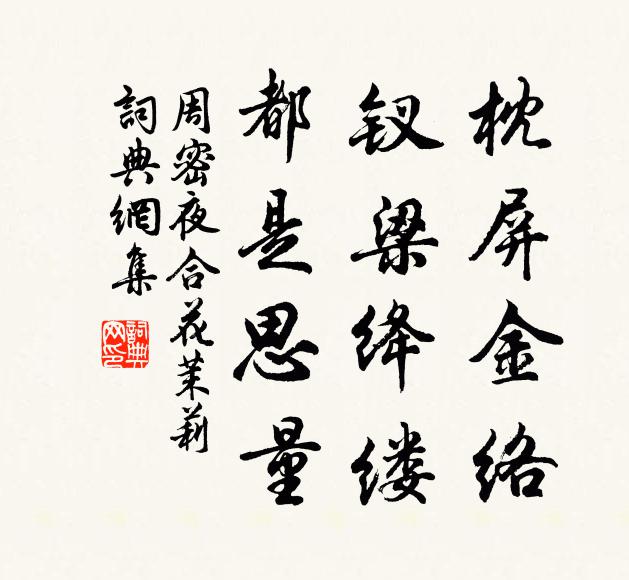 枕屏金络
钗梁绛缕
都是思量
周密夜合花茉莉
詞典網集
詞典
网印